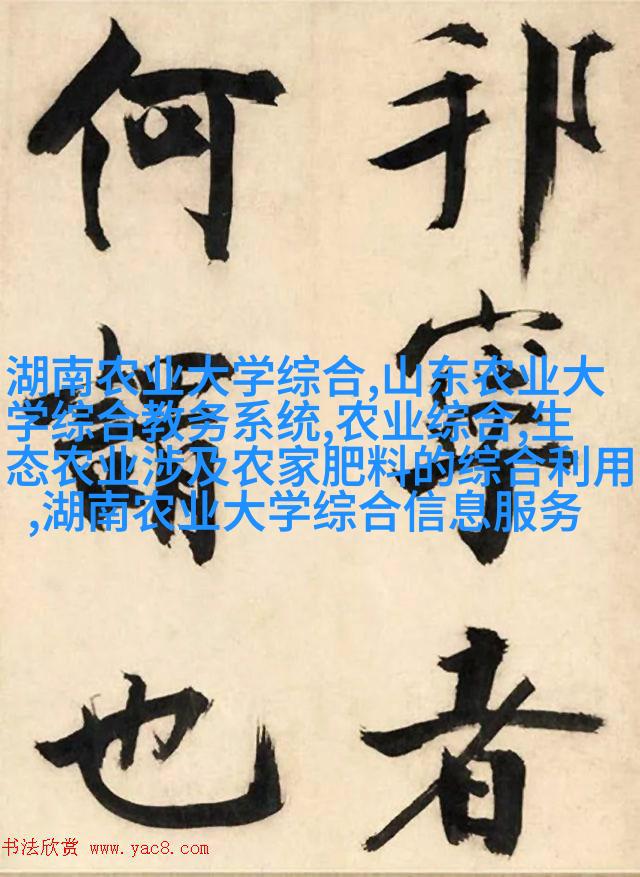 邦者
何也
湖南农业大学综合,山东农业大
学综合教务系统,农业综合,生
态农业涉及农家肥料的综合利用
,湖南农业大学综合信息服务
书法欣赏 www.yac8.com